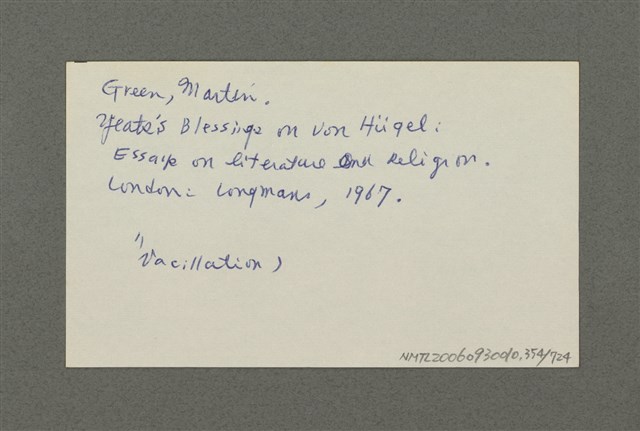 Green, Martin.
Yeats's Blessings on von Hügel:
Essays on literature and Religion.
London: Longmans, 1967.
"Vacillation)
NMTL20060930010.354/724